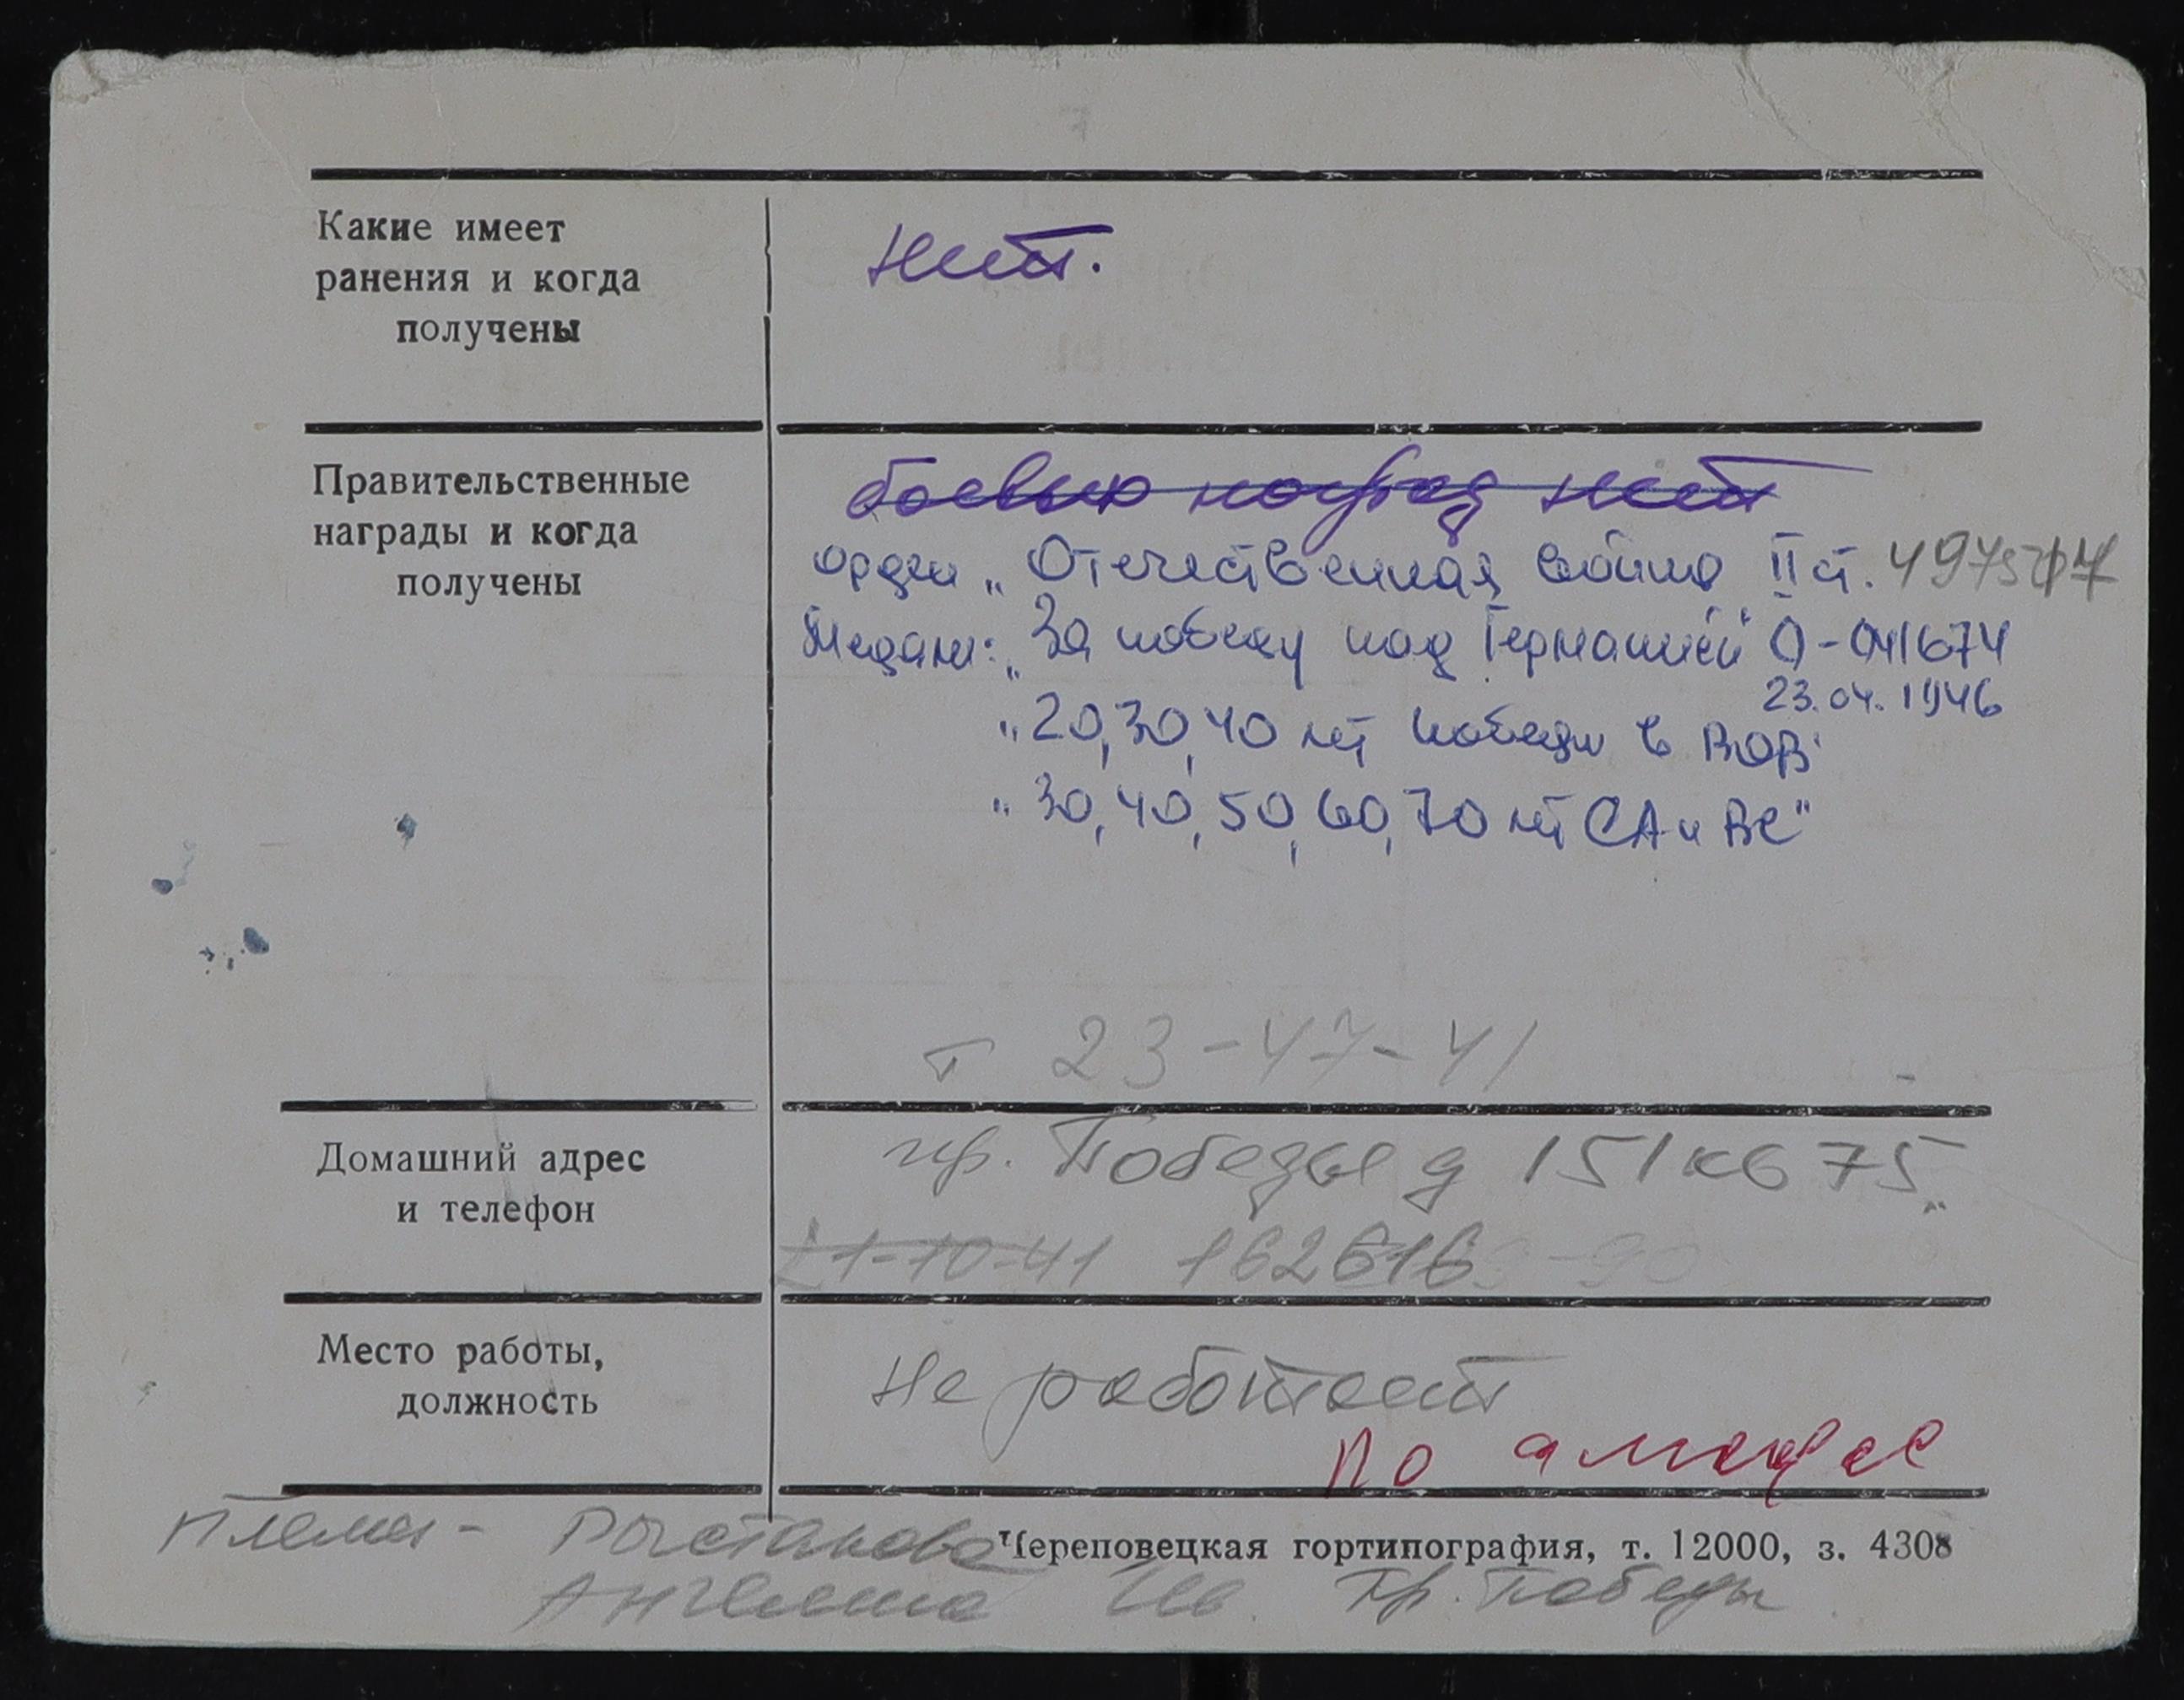 Какие имеет
ранения и когда
получены
нет.
Правительственные
награды и когда
получены
боевых наград нет
орден „Отечественная война IIст.
Медали: „За победу над Германией" О-041674
23.04.1946
„20, 30, 40 лет победы в ВОВ"
„30, 40, 50, 60, 70 лет СА и ВС"
т 23-47-41
Домашний адрес
и телефон
пр. Победы д 151 кв 75
21-10-41 162616
Место работы,
должность
не работает
по
Племян-
Череповецкая гортипография, т. 12000, з. 4308
Ангелина Ив. Пр. Победы